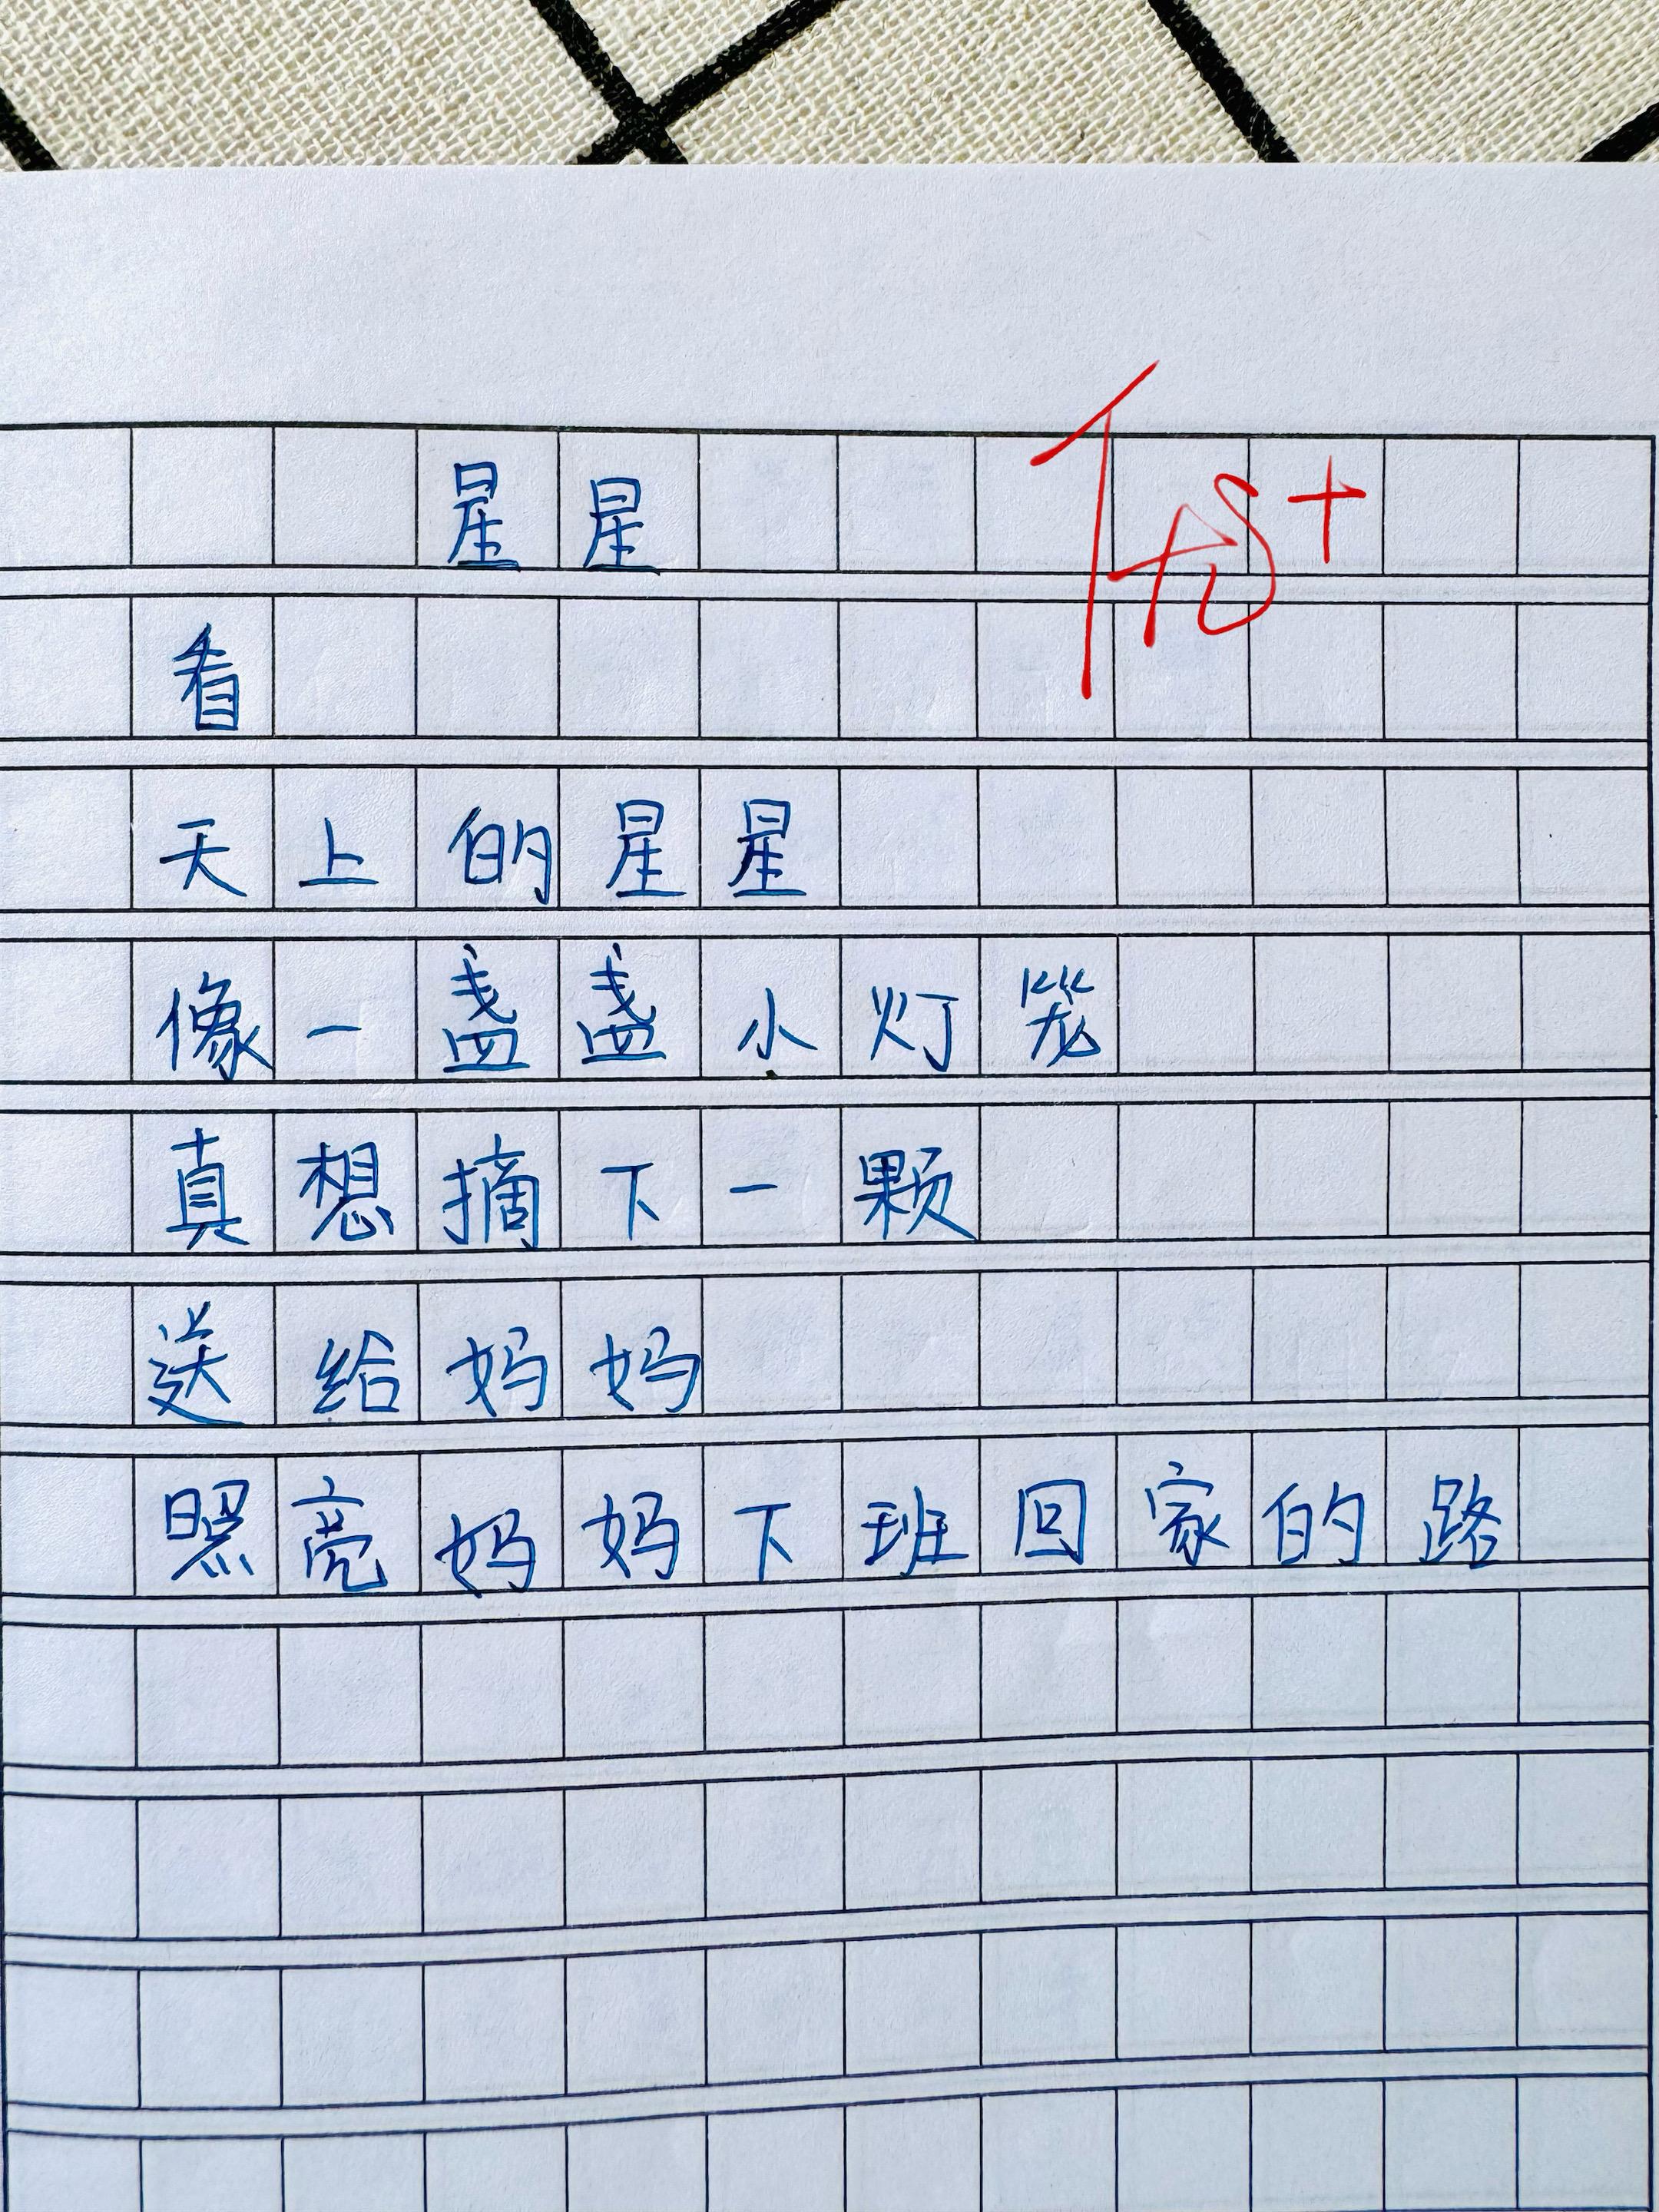 星星
看
天上的星星
像一盏盏小灯笼
真想摘下一颗
送给妈妈
照亮妈妈下班回家的路